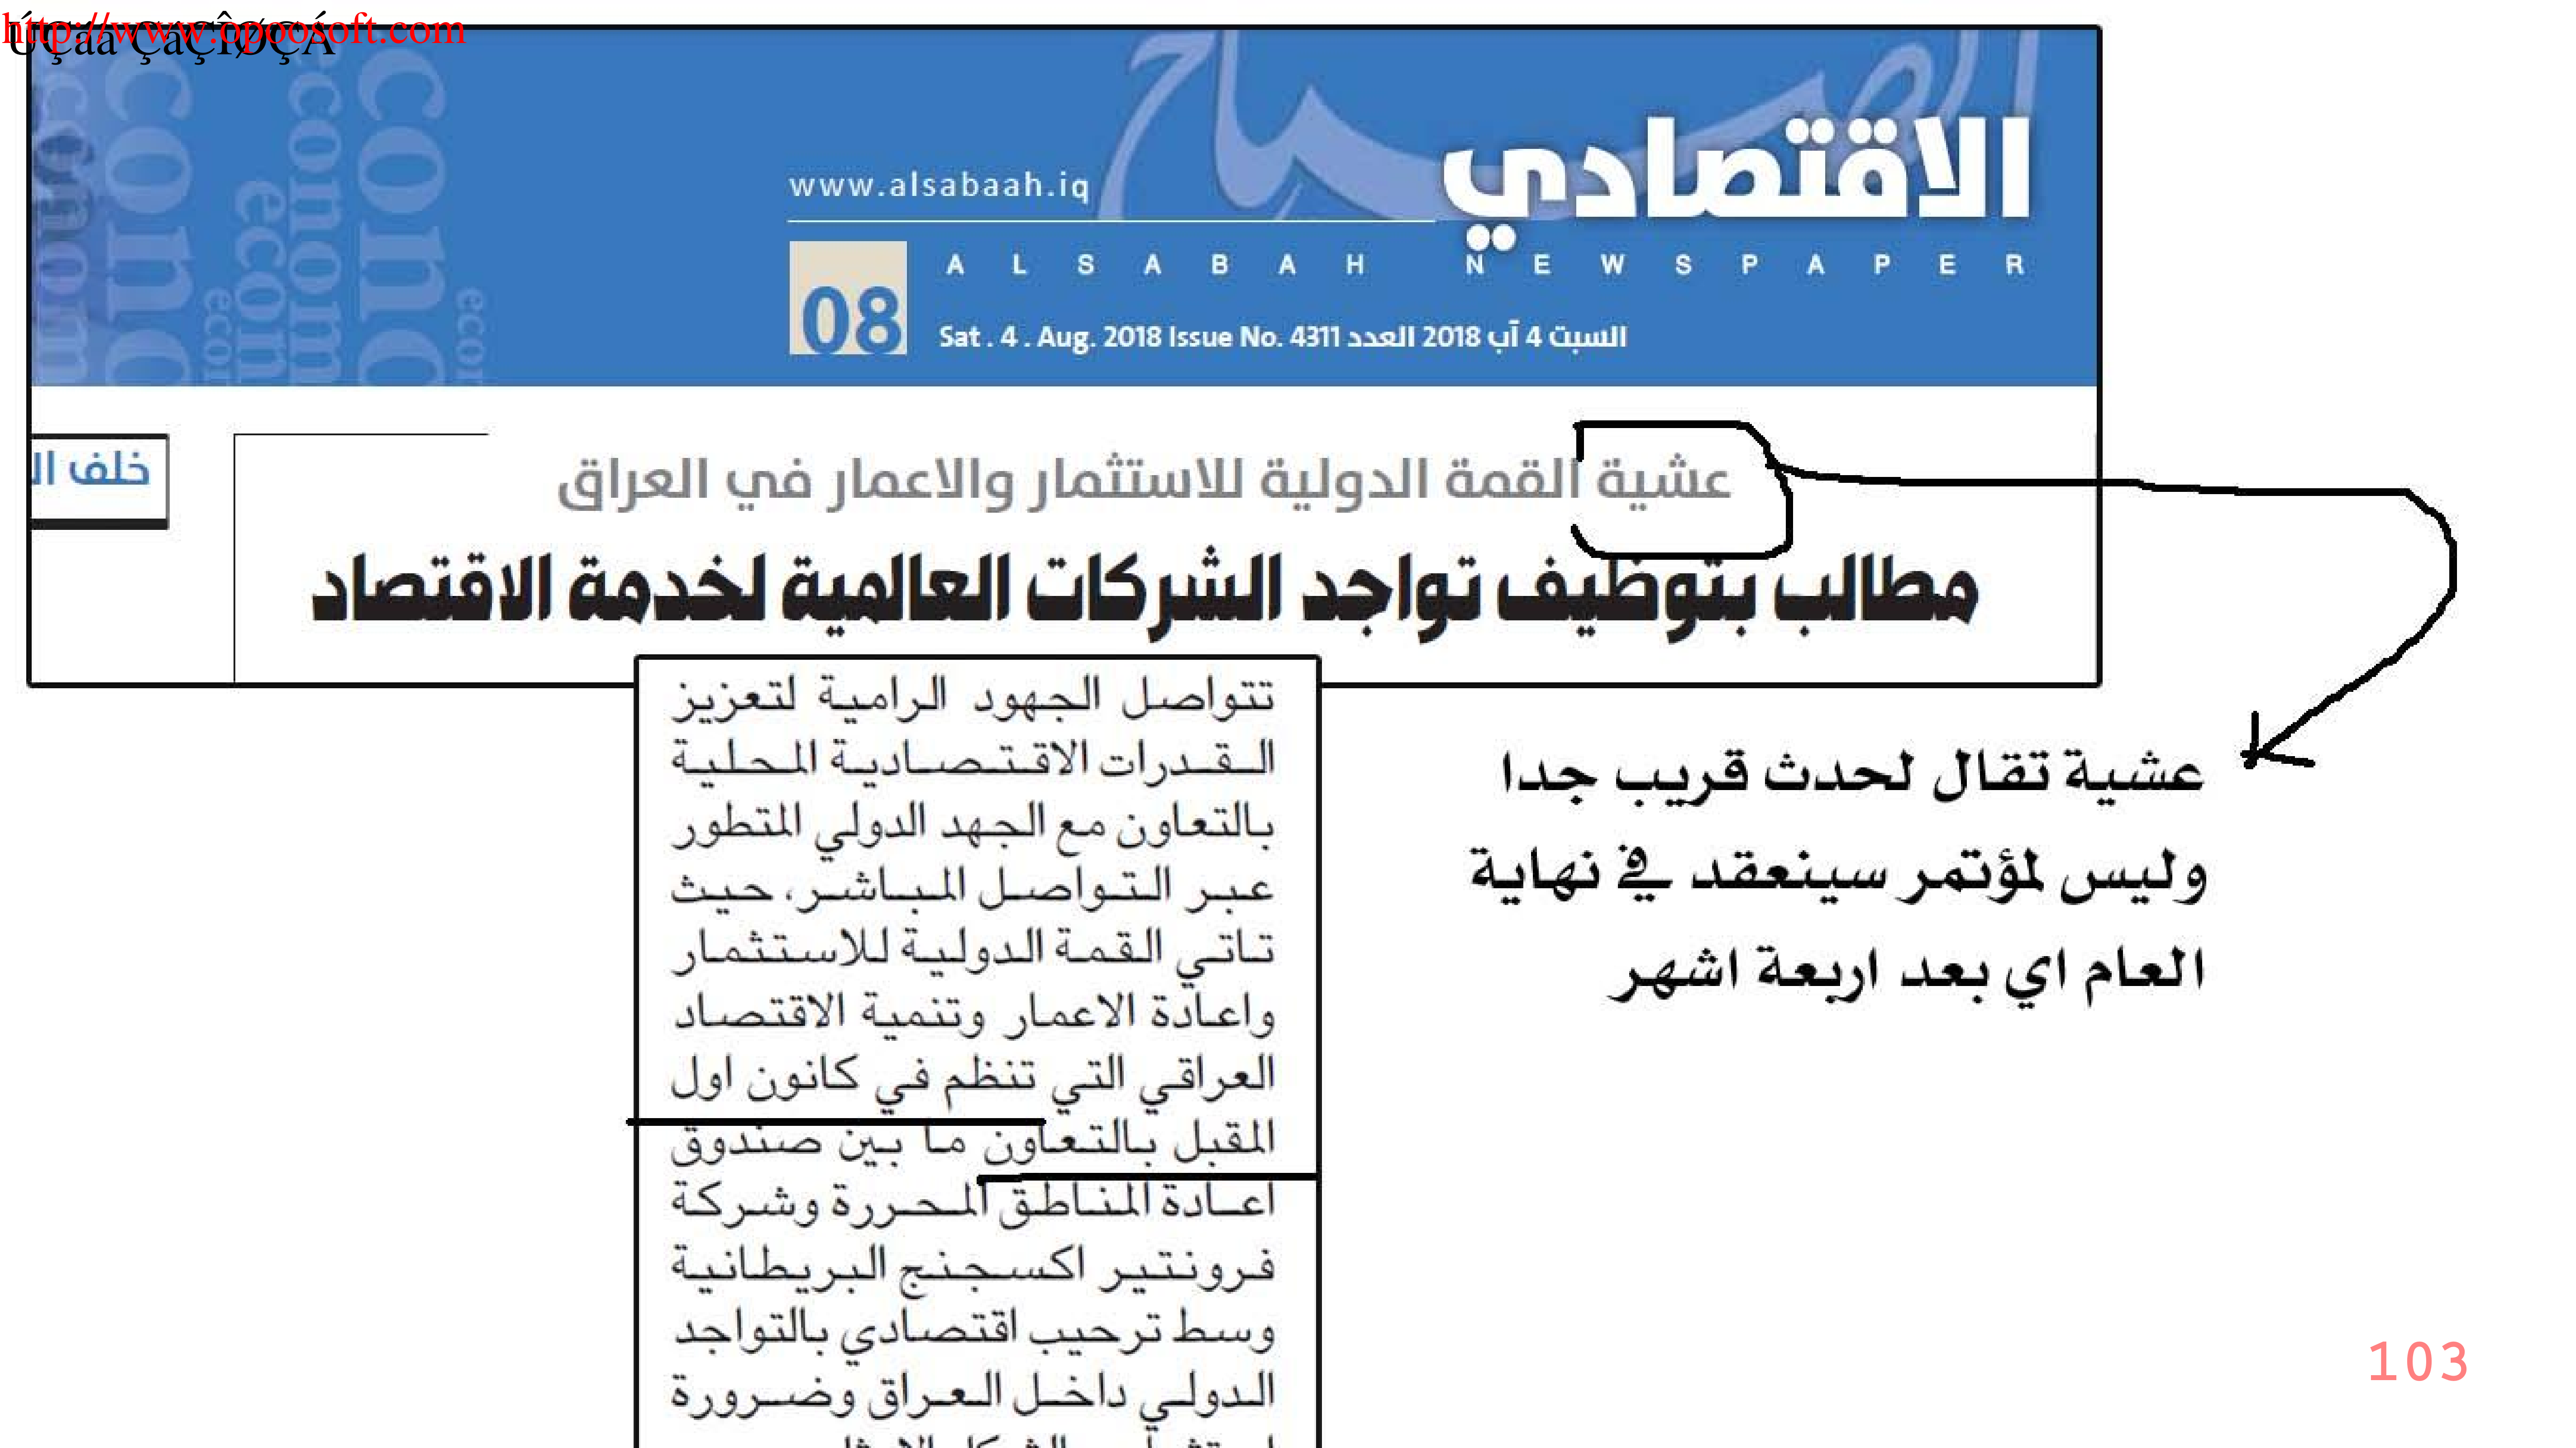 http://www.opoosoft.com
الصباح
الاقتصادي
www.alsabaah.iq
ALSABAH NEWSPAPER
08
Sat . 4 . Aug. 2018 Issue No. 4311 السبت 4 آب 2018 العدد
خلف ال
عشية القمة الدولية للاستثمار والاعمار في العراق
مطالب بتوظيف تواجد الشركات العالمية لخدمة الاقتصاد
تتواصل الجهود الرامية لتعزيز
القدرات الاقتصادية المحلية
بالتعاون مع الجهد الدولي المتطور
عبر التواصل المباشر، حيث
تاتي القمة الدولية للاستثمار
واعادة الاعمار وتنمية الاقتصاد
العراقي التي تنظم في كانون اول
المقبل بالتعاون ما بين صندوق
اعادة المناطق المحررة وشركة
فرونتير اكسجنج البريطانية
وسط ترحيب اقتصادي بالتواجد
الدولي داخل العراق وضرورة
عشية تقال لحدث قريب جدا
وليس لمؤتمر سينعقد في نهاية
العام اي بعد اربعة اشهر
103